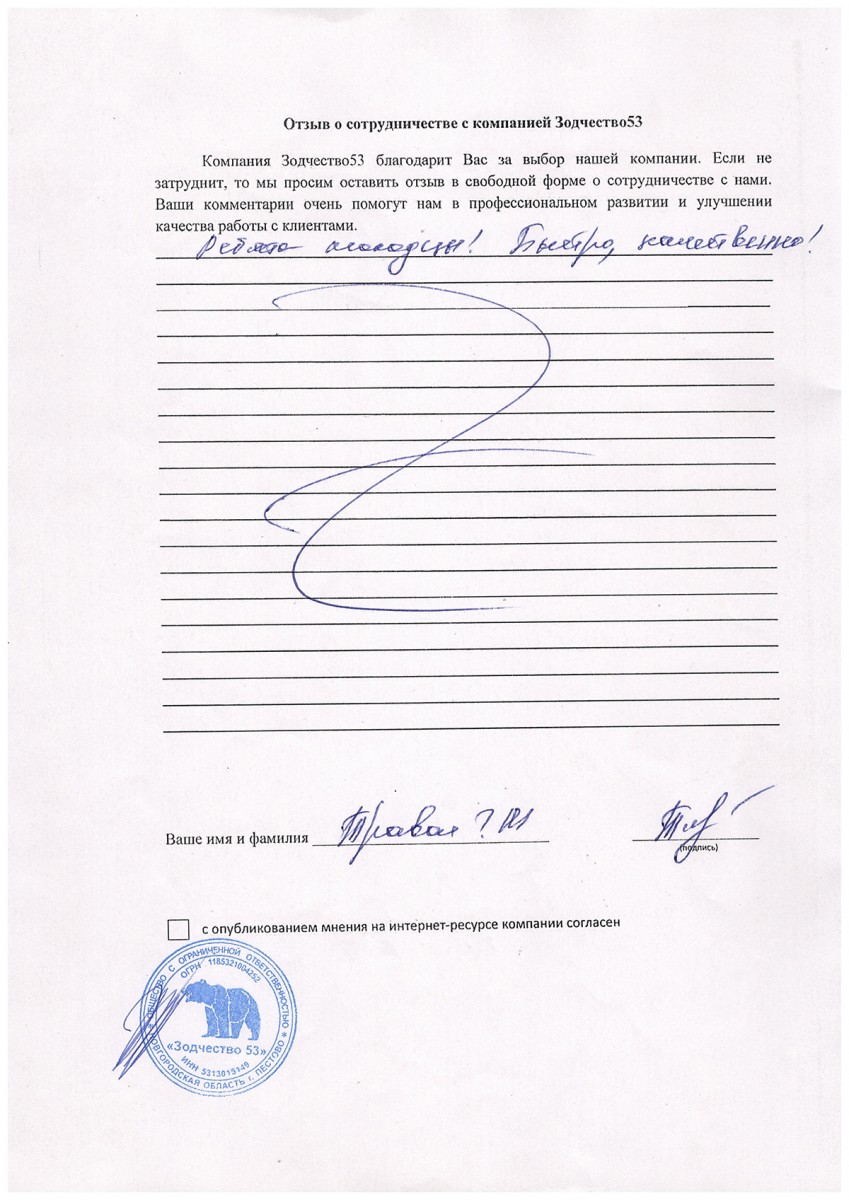 Отзыв о сотрудничестве с компанией Зодчество53
Компания Зодчество53 благодарит Вас за выбор нашей компании. Если не
затруднит, то мы просим оставить отзыв в свободной форме о сотрудничестве с нами.
Ваши комментарии очень помогут нам в профессиональном развитии и улучшении
качества работы с клиентами.
Ребята молодцы! Быстро, качественно!
Ваше имя и фамилия
(подпись)
с опубликованием мнения на интернет-ресурсе компании согласен
ОБЩЕСТВО С ОГРАНИЧЕННОЙ ОТВЕТСТВЕННОСТЬЮ
ОГРН 1185321004252
«Зодчество 53»
ИНН 5313015149
НОВГОРОДСКАЯ ОБЛАСТЬ г. ПЕСТОВО